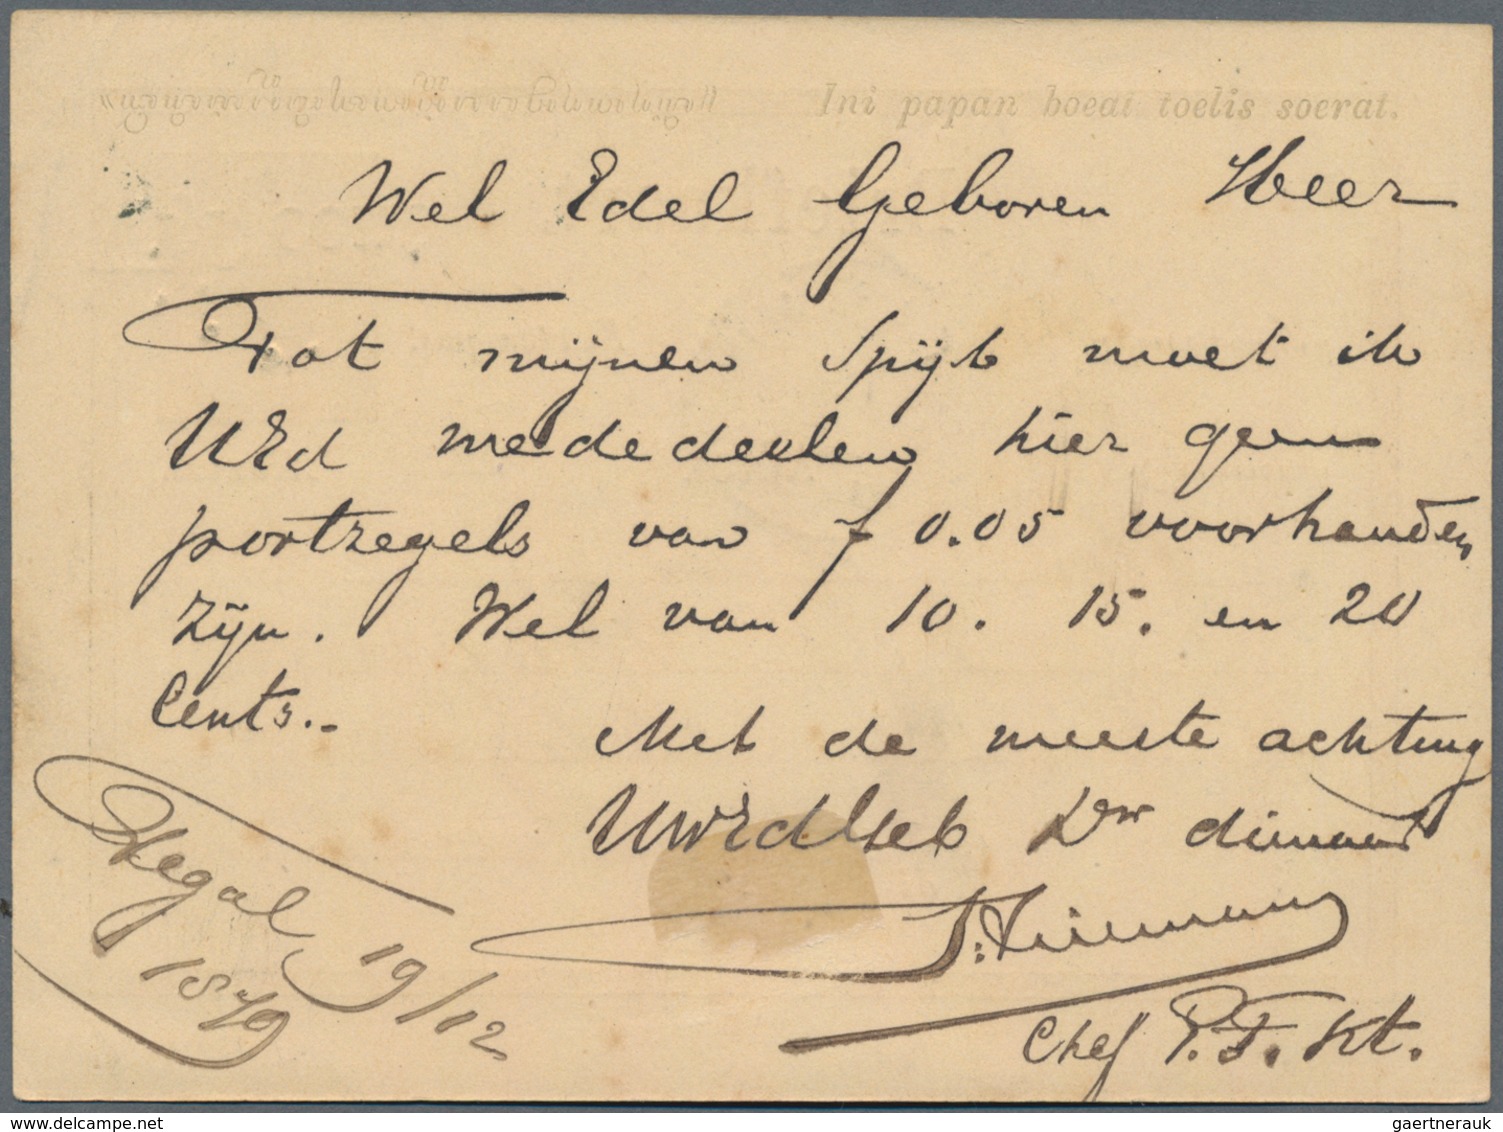 Ini papan boeat toelis soerat.
Wel Edel Geboren Heer
Tot mijnen Spijt moet ik
UEd mededeelen hier geen
portzegels van f 0.05 voorhanden
zijn. Wel van 10. 15. en 20
Cents.-
Met de meeste achting
UWEd Dw dienaar
Tegal, 19/12
1879
Chef P. T. Kt.
delcampe.net
gaertnerauk